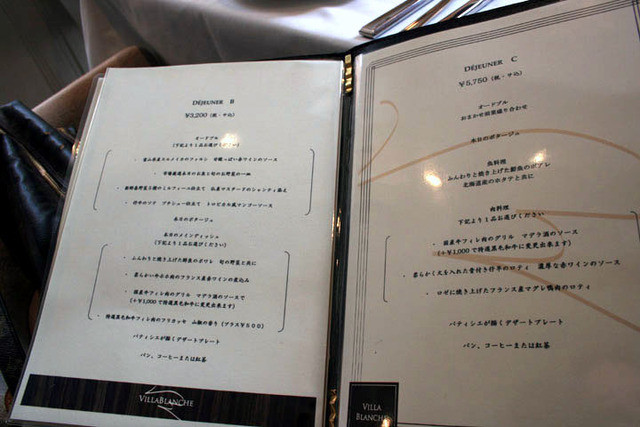 DÉJEUNER B
¥3,200 (税・サ込)
オードブル
(下記より1品お選びください)
本日のポタージュ
本日のメインディッシュ
(下記より1品お選びください)
・ ふんわりと焼き上げた鮮魚のポワレ 旬の野菜と共に
・ 柔らかい牛ホホ肉のフランス産赤ワインの煮込み
・ 国産牛フィレ肉のグリル マデラ酒のソースで
(+¥1,000で特選黒毛和牛に変更出来ます)
・ 特選黒毛和牛フィレ肉のフリカッセ 山椒の香り (プラス¥500)
パティシエが描くデザートプレート
パン、コーヒーまたは紅茶
VILLABLANCHE
DÉJEUNER C
¥5,750 (税・サ込)
オードブル
おまかせ前菜盛り合わせ
本日のポタージュ
魚料理
ふんわりと焼き上げた鮮魚のポワレ
北海道産のホタテと共に
肉料理
下記より1品お選びください
・ 国産牛フィレ肉のグリル マデラ酒のソース
(+¥1,000で特選黒毛和牛に変更出来ます)
・ 柔らかく火を入れた骨付き仔羊のロティ 濃厚な赤ワインのソース
・ ロゼに焼き上げたフランス産マグレ鴨肉のロティ
パティシエが描くデザートプレート
パン、コーヒーまたは紅茶
VILLA
BLANCHE